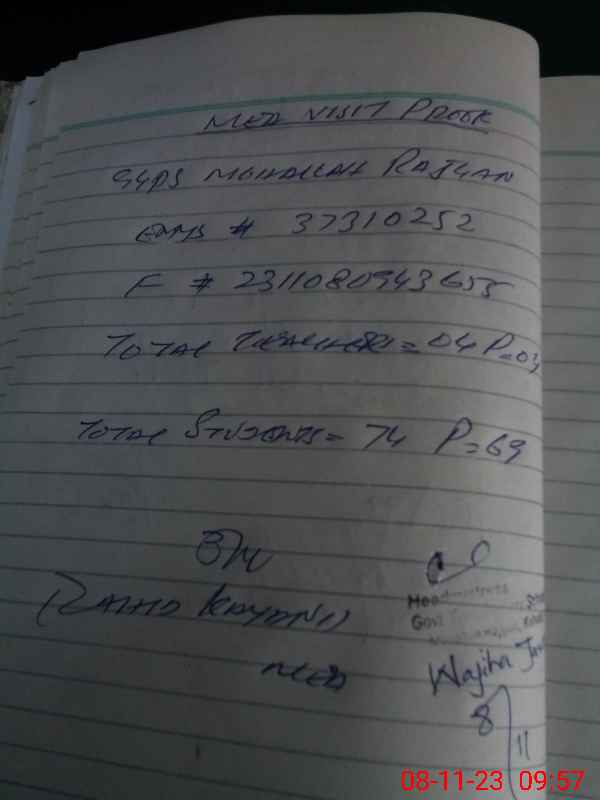 MEA VISIT PROOF
GGPS MOHALLAH RAJGAN
EMIS # 37310252
F # 2311080943655
TOTAL TEACHERS = 04 P=04
TOTAL STUDENTS = 74 P=69
(ZAHID KAYANI)
MEA
Headmistress
Govt
Wajiha
8/11
08-11-23 09:57